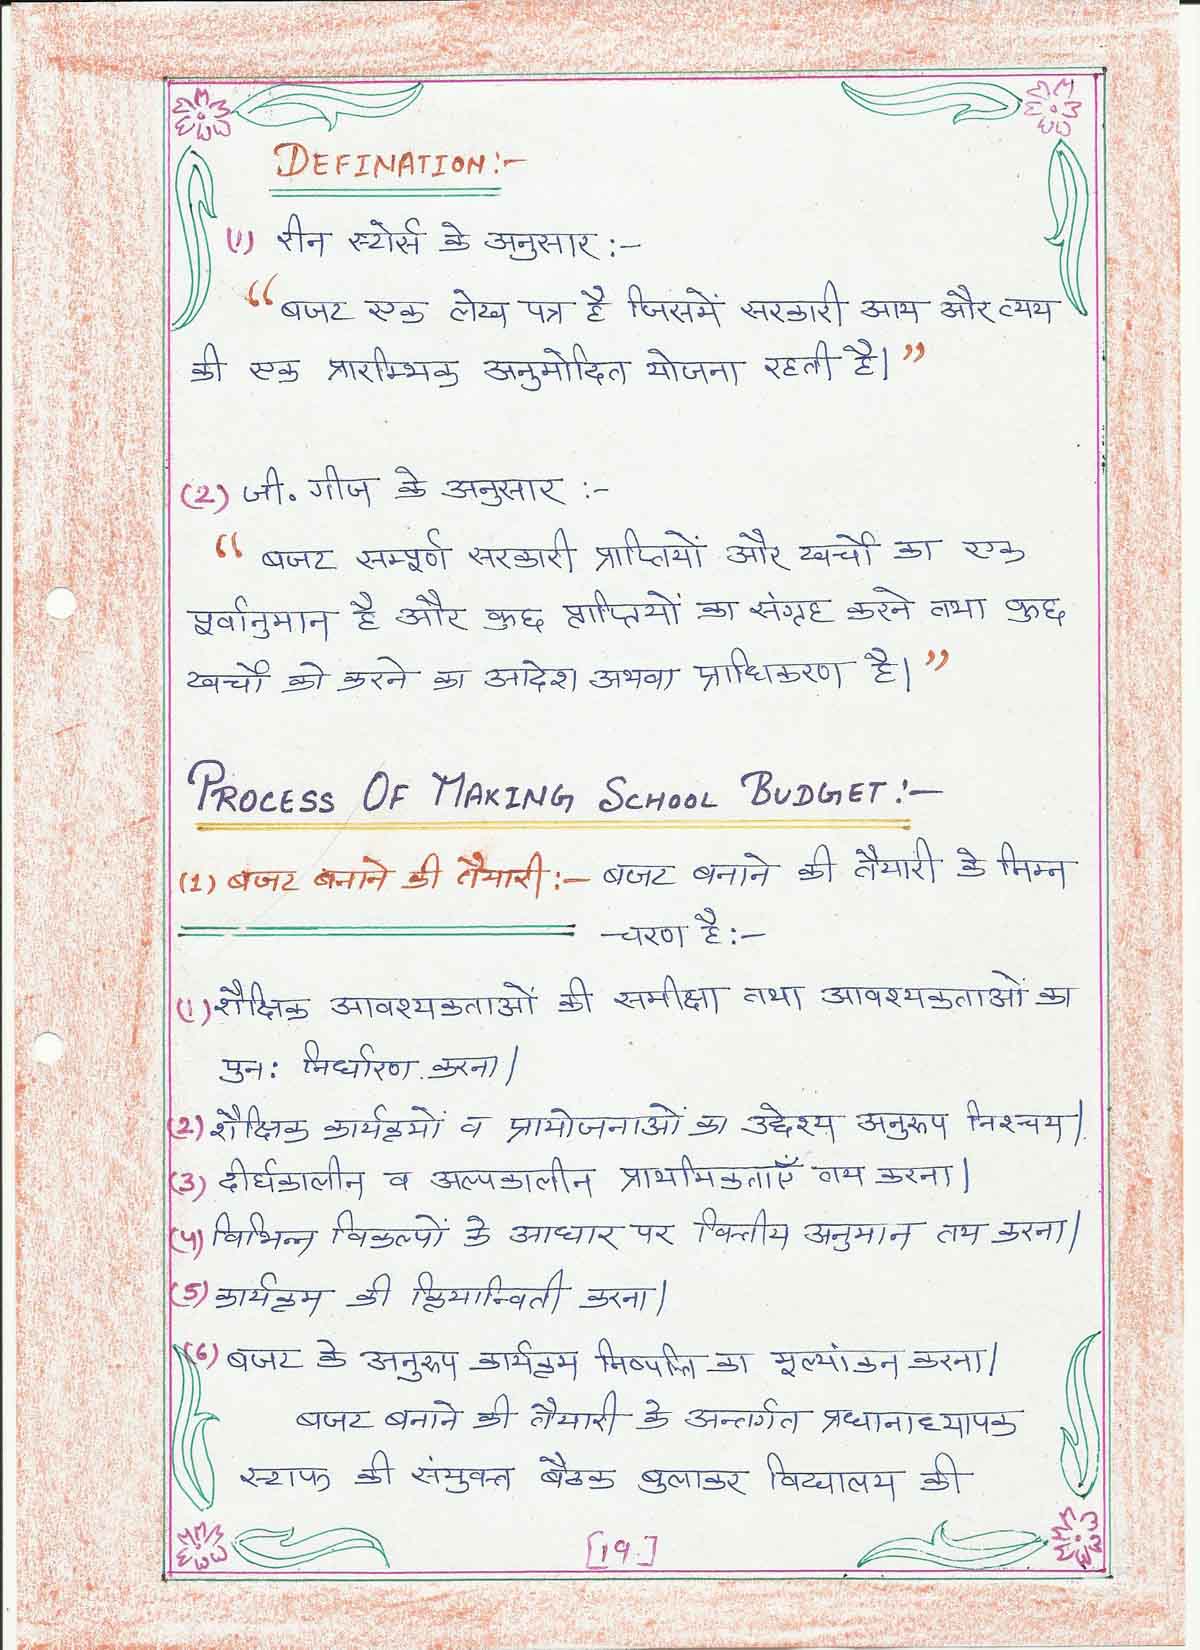 DEFINATION:-
(1) रीन स्टोर्स के अनुसार :-
“बजट एक लेख पत्र है जिसमें सरकारी आय और व्यय
की एक प्रारम्भिक अनुमोदित योजना रहती है।”
(2) जी. गीज के अनुसार :-
“ बजट सम्पूर्ण सरकारी प्राप्तियों और खर्चों का एक
पूर्वानुमान है और कुछ प्राप्तियों का संग्रह करने तथा कुछ
खर्चों को करने का आदेश अथवा प्राधिकरण है।”
PROCESS OF MAKING SCHOOL BUDGET:-
(1) बजट बनाने की तैयारी:- बजट बनाने की तैयारी के निम्न
चरण है:-
(1) शैक्षिक आवश्यकताओं की समीक्षा तथा आवश्यकताओं का
पुन: निर्धारण करना।
(2) शैक्षिक कार्यक्रमों व प्रायोजनाओं का उद्देश्य अनुरूप निश्चय।
(3) दीर्घकालीन व अल्पकालीन प्राथमिकताएँ तय करना।
(4) विभिन्न विकल्पों के आधार पर वित्तीय अनुमान तय करना।
(5) कार्यक्रम की क्रियान्विती करना।
(6) बजट के अनुरूप कार्यक्रम निष्पत्ति का मूल्यांकन करना।
बजट बनाने की तैयारी के अन्तर्गत प्रधानाध्यापक
स्टाफ की संयुक्त बैठक बुलाकर विद्यालय की
[19]